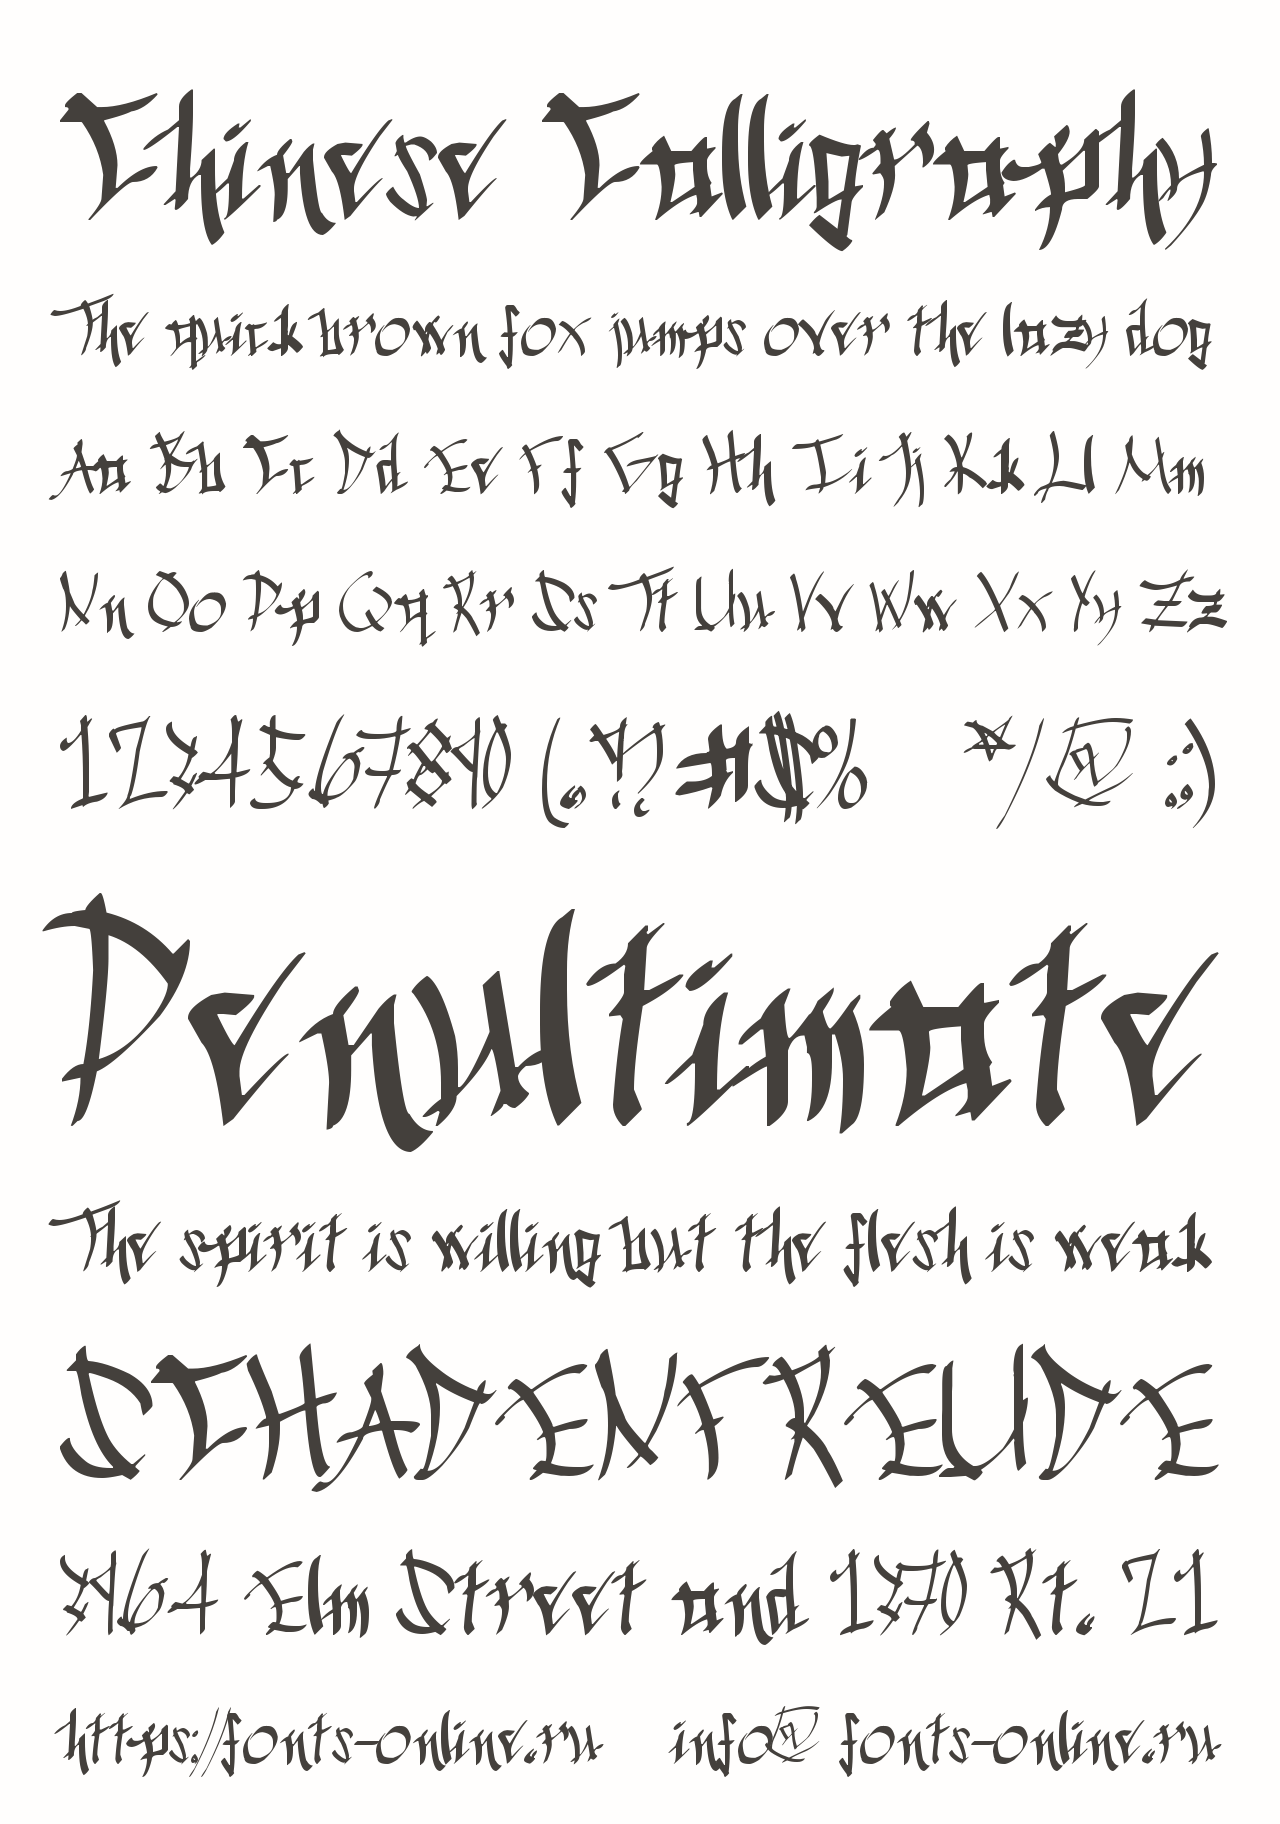 Chinese Calligraphy
The quick brown fox jumps over the lazy dog
Aa Bb Cc Dd Ee Ff Gg Hh Ii Jj Kk Ll Mm
Nn Oo Pp Qq Rr Ss Tt Uu Vv Ww Xx Yy Zz
1234567890 (.,?!,) #$% */@ :;)
Penultimate
The spirit is willing but the flesh is weak
SCHADENFREUDE
3964 Elm Street and 1370 Rt. 21
https://fonts-online.ru info@fonts-online.ru